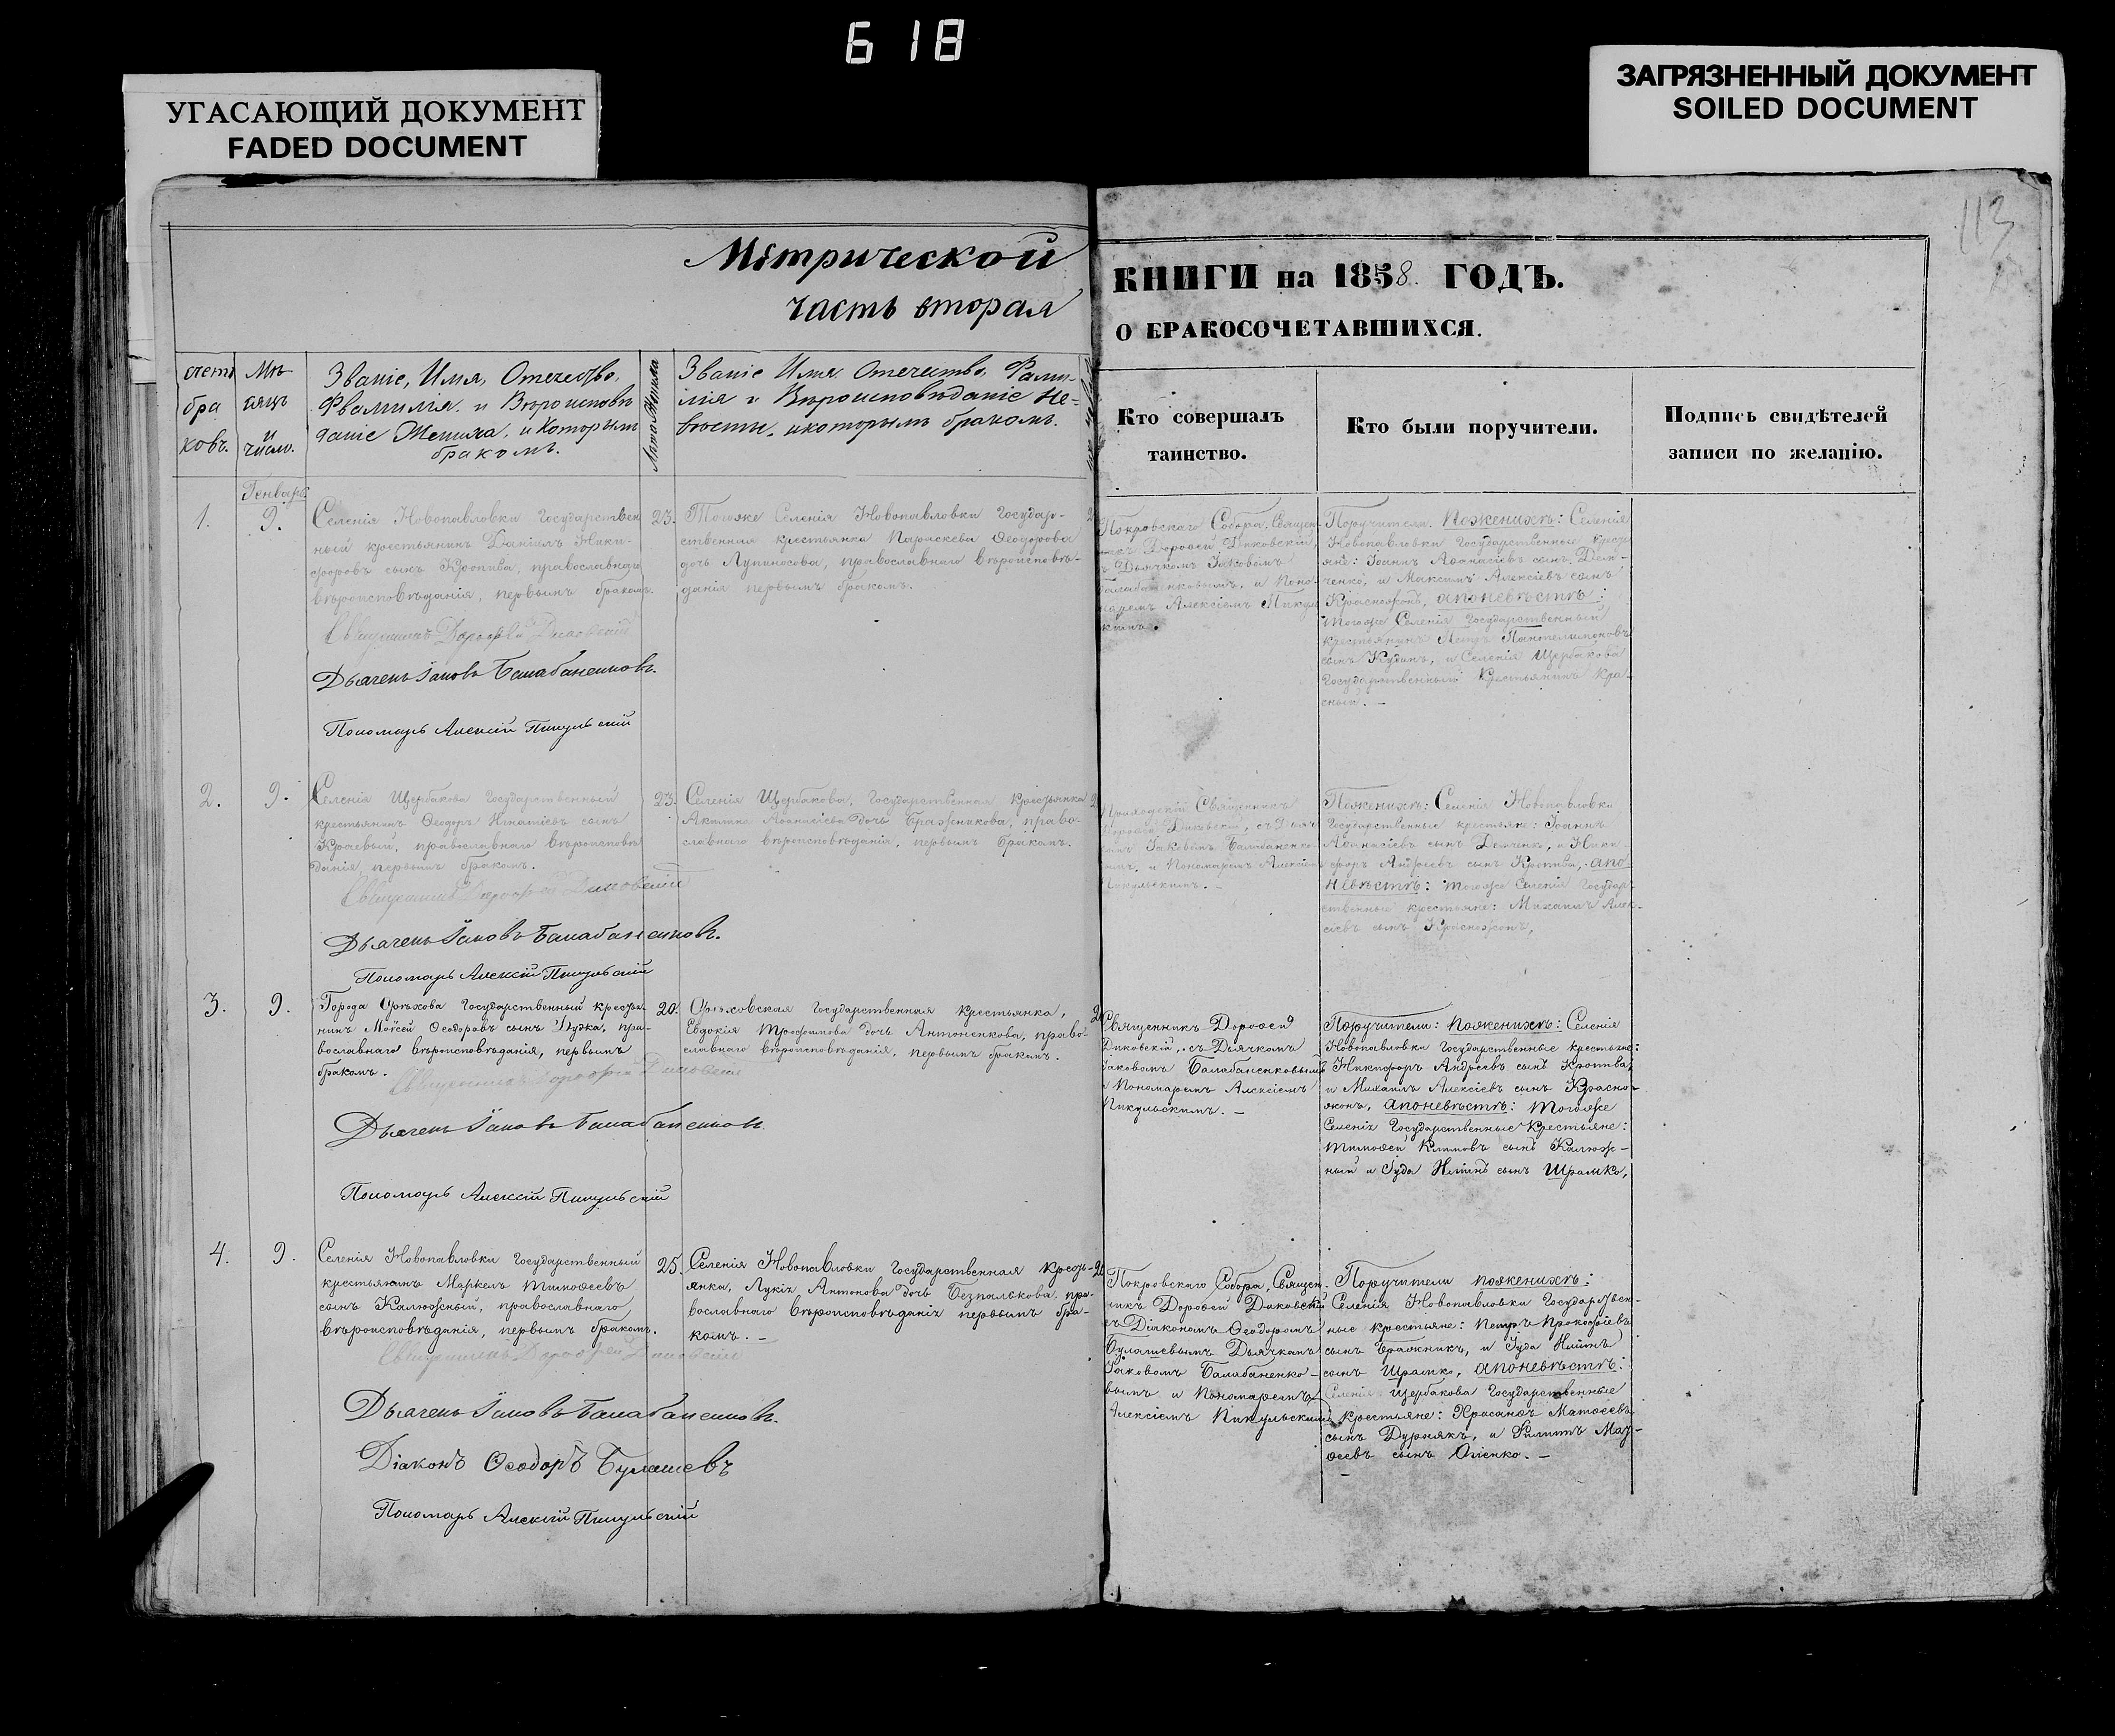 6 18
УГАСАЮЩИЙ ДОКУМЕНТ
FADED DOCUMENT
ЗАГРЯЗНЕННЫЙ ДОКУМЕНТ
SOILED DOCUMENT
113
Метрической
часть вторая
КНИГИ на 1858. ГОДЪ.
О БРАКОСОЧЕТАВШИХСЯ.
счетъ
бра
ковъ.
Мѣ
сяцъ
и
число.
Званіе, Имя, Отечество,
Фвамилія. и Вѣроисповѣ
даніе Жениха, и Которымъ
бракомъ.
Лета Жениха
Званіе Имя. Отечество, Фами-
лія и Вѣроисповѣданіе Не-
вѣсты, икоторымъ бракомъ.
Кто совершалъ
таинство.
Кто были поручители.
Подпись свидѣтелей
записи по желанію.
Генваря
1.
9.
Селенія Новопавловки Государствен
ный крестьянинъ Даніилъ Ники-
форовъ сынъ Кропива, православнаго
вѣроисповѣданія, первымъ бракомъ.
Священникъ Дорофей Диковскій
Дьячекъ Іаковъ Балабаненковъ.
Пономарь Алексій Пикульскій
23.
Тогоже Селенія Новопавловки Государ-
ственная крестьянка Параскева Ѳеодорова
дочь Лупиносова, православнаго вѣроисповѣ-
данія первымъ бракомъ.
Покровскаго Собора, Священ-
никъ Дорофей Диковскій,
ъ Дьячкомъ Іаковомъ
Балабаненковымъ, и Поно-
маремъ Алексіемъ Пикуль
скимъ.
Поручители. Поженихѣ: Селенія
Новопавловки Государственные кресть
яне: Іоаннъ Аѳанасіевъ сынъ Дем-
ченко, и Максимъ Алексіевъ сынъ
Красножонъ, апоневѣстѣ:
Тогоже Селенія Государственный
крестьянинъ Пантелимоновъ
сынъ Кудинъ, и Селенія Щербакова
Государственный Крестьянинъ Кра-
сный. —
2.
9.
Селенія Щербакова Государственный
крестьянинъ Ѳеодоръ Игнатіевъ сынъ
Краевый, православнаго вѣроисповѣ
данія, первымъ бракомъ.
Священникъ Дорофей Диковскій
Дьячекъ Іаковъ Балабаненковъ.
Пономарь Алексій Пикульскій
23.
Селенія Щербакова, Государственная Крестьянка
Акилина Аѳанасіева дочь Бражникова, право-
славнаго вѣроисповѣданія, первымъ бракомъ.
Приходскій Священникъ
Дорофей Диковскій, съ Дьяч
комъ Іаковомъ Балабаненко
вымъ, и Пономаремъ Алексіем
Пикульскимъ. —
Поженихѣ: Селенія Новопавловки
Государственные крестьяне: Іоаннъ
Аѳанасіевъ сынъ Демченко, и Ники
форъ Андреевъ сынъ Кропива, апо
невѣстѣ: тогоже Селенія Государ
ственные крестьяне: Михаилъ Алек-
сіевъ сынъ Красножонъ,
3.
9.
Города Орѣхова Государственный кресть-
нинъ Моѵсей Ѳеодоровъ сынъ Дудка, пра-
вославнаго вѣроисповѣданія, первымъ
бракомъ.
Священникъ Дорофей Диковскій
Дьячекъ Іаковъ Балабаненковъ.
Пономарь Алексій Пикульскій
20.
Орѣховская Государственная крестьянка,
Евдокія Трофимова дочь Антоненкова, право-
славнаго вѣроисповѣданія, первымъ бракомъ.
Священникъ Дорофей
Диковскій, съ Дьячкомъ
Іаковомъ Балабаненковымъ
и Пономаремъ Алексіемъ
Пикульскимъ. —
Поручители: Поженихѣ: Селенія
Новопавловки Государственные крестьяне:
Никифоръ Андреевъ сынъ Кропива,
и Михаилъ Алексіевъ сынъ Красно-
жонъ, апоневѣстѣ: Тогоже
Селенія Государственные Крестьяне:
Тимоѳей Климовъ сынъ Калюж-
ный и Іуда Илiинъ сынъ Шрамко,
4.
9.
Селенія Новопавловки Государственный
крестьянинъ Маркелъ Тимоѳеевъ
сынъ Калюжный, православнаго
вѣроисповѣданія, первымъ бракомъ.
Священникъ Дорофей Диковскій
Дьячекъ Іаковъ Балабаненковъ.
Діаконъ Ѳеодоръ Булашевъ
Пономарь Алексій Пикульскій
25.
Селенія Новопавловки Государственная Кресть-
янка, Лукія Антонова дочь Безпалькова, пра-
вославнаго вѣроисповѣданія первымъ бра-
комъ. —
Покровскаго Собора, Священ-
никъ Дорофей Диковскій
съ Діакономъ Ѳеодоромъ
Булашевымъ Дьячкомъ
Іаковомъ Балабаненко-
вымъ и Пономаремъ
Алексіемъ Пикульскимъ
Поручители поженихѣ:
Селенія Новопавловки Государствен-
ные крестьяне: Петръ Прокофіевъ
сынъ Бражникъ, и Іуда Илiинъ
сынъ Шрамко, апоневѣстѣ:
Селенія Щербакова Государственные
крестьяне: Хрисанфъ Матѳеевъ
сынъ Дурнякъ, и Филиппъ Мат-
ѳеевъ сынъ Огіенко. —